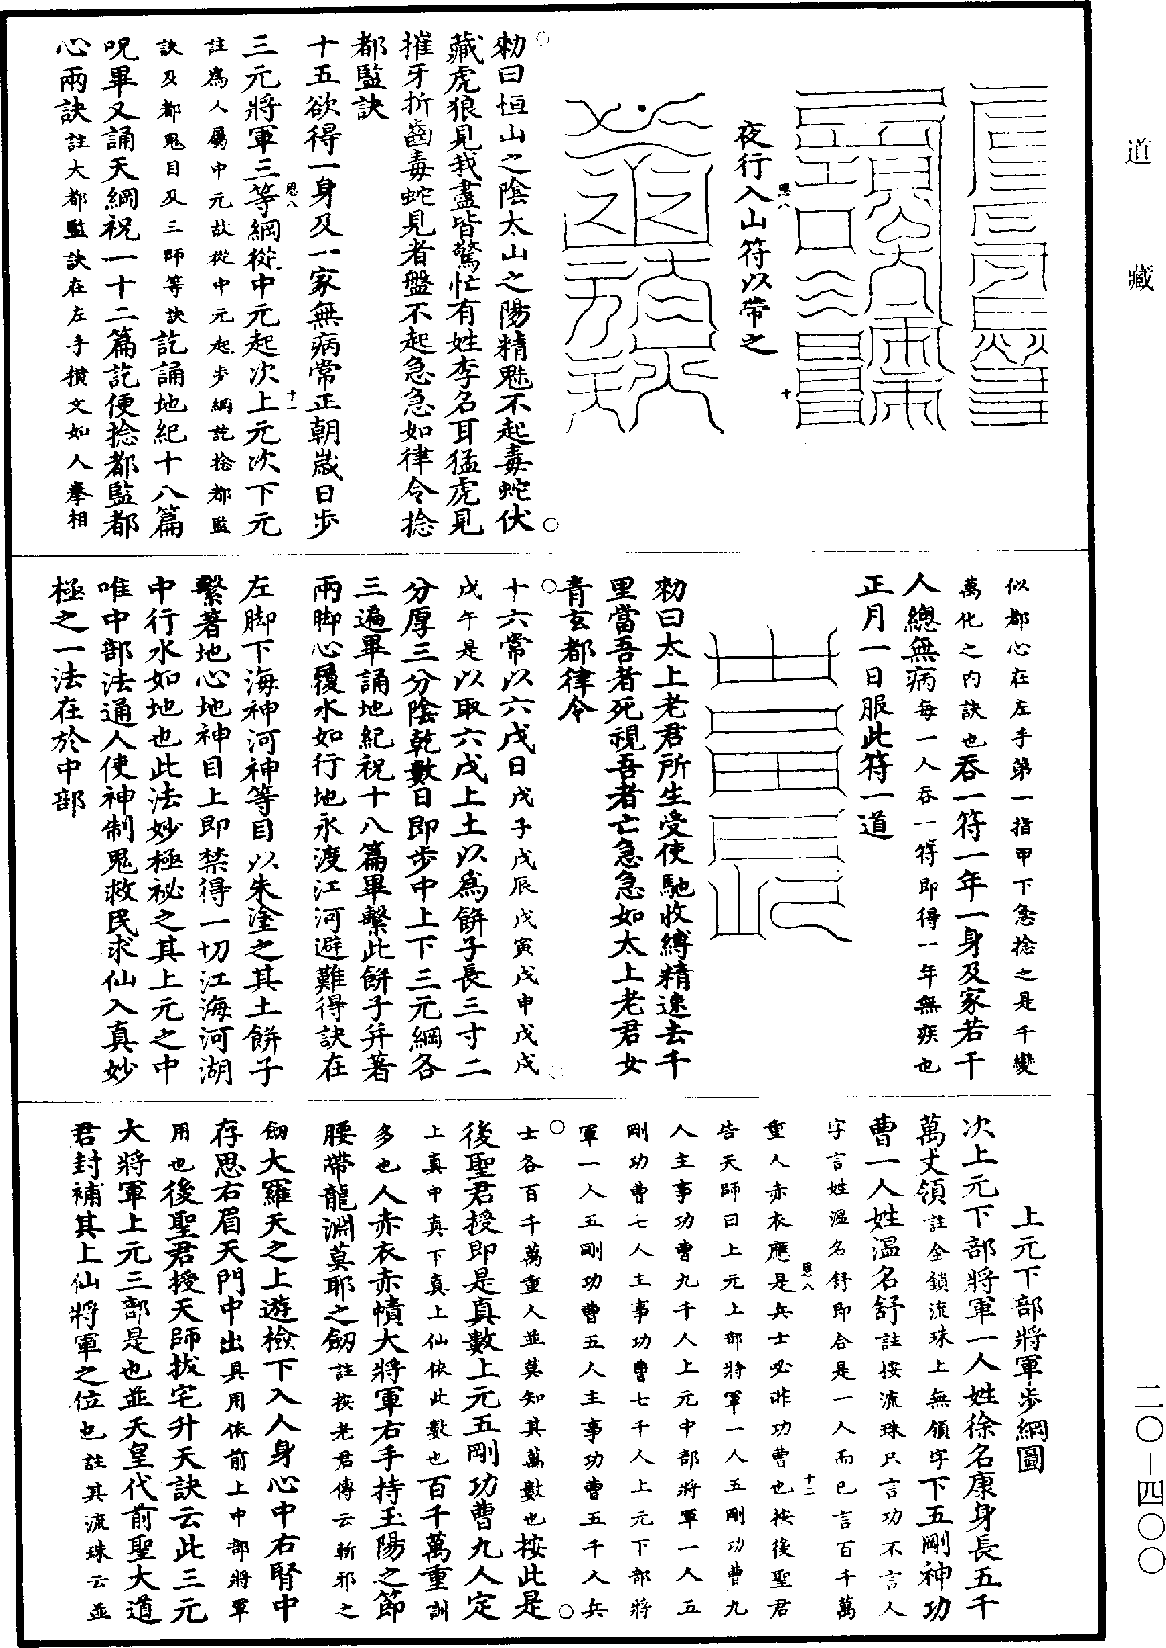 道藏
二〇—四〇〇
夜行入山符以帶之
思八
十
勑曰恒山之陰太山之陽精魅不起毒蛇伏
藏虎狼見我盡皆驚忙有姓李名耳猛虎見
摧牙折齒毒蛇見者盤不起急急如律令捻
都監訣
十五欲得一身及一家無病常正朝歲日步
三元將軍三等綱從中元起次上元次下元
思八
十一
註爲人屬中元故從中元起步綱訖捻都監
訣及都鬼目及三師等訣訖誦地紀十八篇
呪畢又誦天綱祝一十二篇訖便捻都監都
心兩訣註大都監訣在左手橫文如人拳相
似都心在左手第一指甲下急捻之是千變
萬化之內訣也吞一符一年一身及家若干
人總無病每一人吞一符即得一年無疾也
正月一日服此符一道
勑曰太上老君所生受使馳收縛精速去千
里當吾者死視吾者亡急急如太上老君女
青玄都律令
十六常以六戊日戊子戊辰戊寅戊申戊戌
戊午是以取六戊上土以爲餅子長三寸二
分厚三分陰乾數日即步中上下三元綱各
三遍畢誦地紀祝十八篇畢繫此餅子幷著
兩脚心履水如行地永渡江河避難得訣在
左脚下海神河神等目以朱塗之其土餅子
繫著地心地神目上即禁得一切江海河湖
中行水如地也此法妙極祕之其上元之中
唯中部法通人使神制鬼救民求仙入真妙
極之一法在於中部
上元下部將軍步綱圖
次上元下部將軍一人姓徐名康身長五千
萬丈領註金鎖流珠上無領字下五剛神功
曹一人姓溫名舒註按流珠只言功不言人
字言姓溫名舒即合是一人而已言百千萬
思八
十二
重人赤衣應是兵士必非功曹也按後聖君
告天師曰上元上部將軍一人五剛功曹九
人主事功曹九千人上元中部將軍一人五
剛功曹七人主事功曹七千人上元下部將
軍一人五剛功曹五人主事功曹五千人兵
士各百千萬重人並莫知其萬數也按此是
後聖君授即是真數上元五剛功曹九人定
上真中真下真上仙依此數也百千萬重訓
多也人赤衣赤幘大將軍右手持玉陽之節
腰帶龍淵莫耶之劒註按老君傳云斬邪之
劒大羅天之上遊檢下入人身心中右腎中
存思右眉天門中出具用依前上中部將軍
用也後聖君授天師拔宅升天訣云此三元
大將軍上元三部是也並天皇代前聖大道
君封補其上仙將軍之位也註其流珠云並